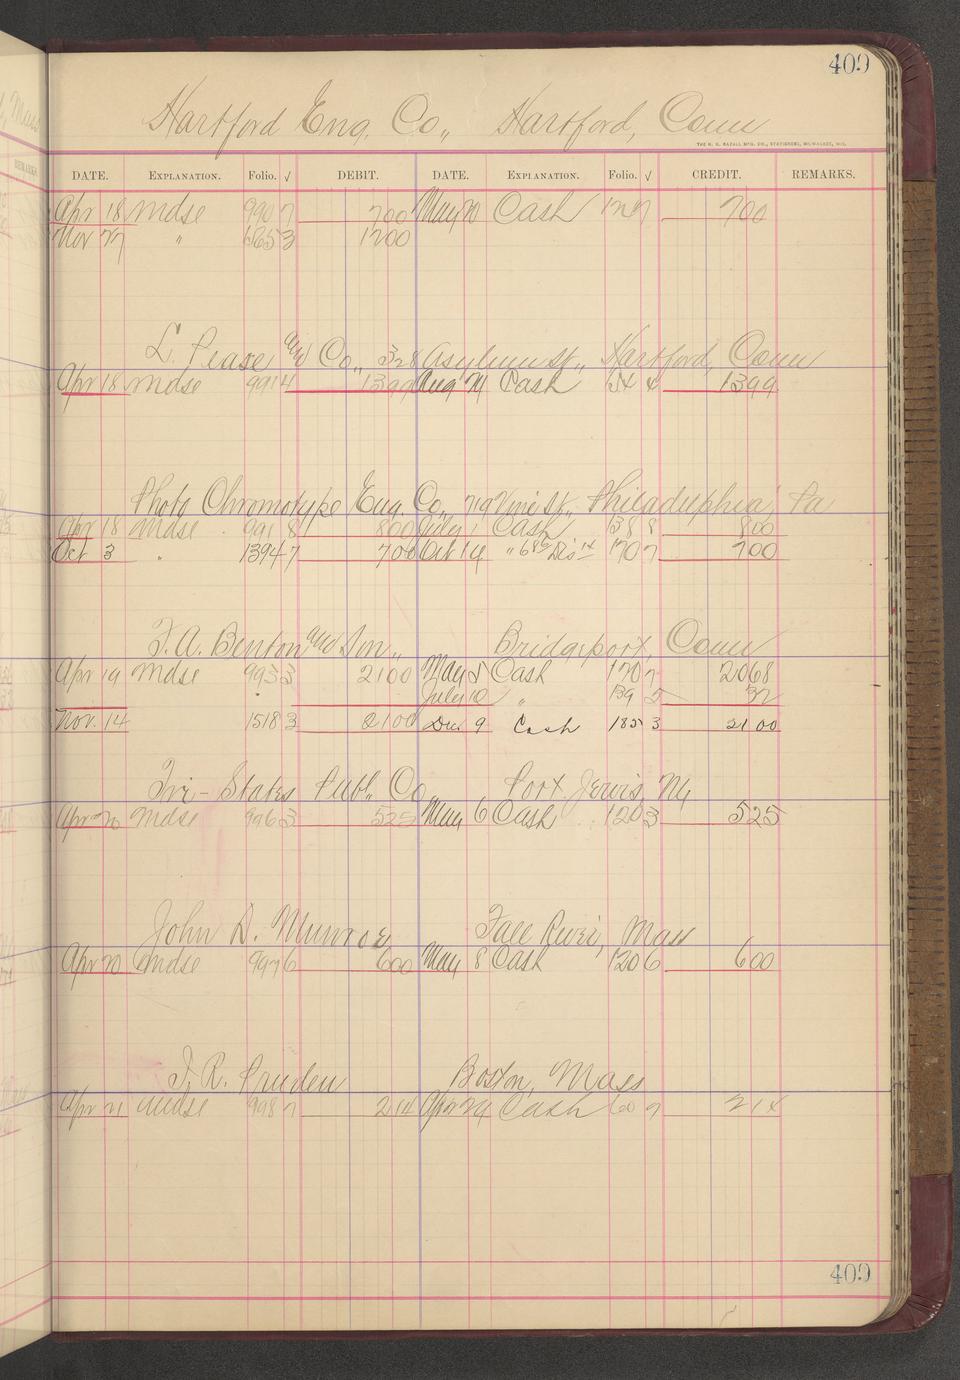 409
Hartford Eng. Co., Hartford, Conn
THE H. H. WEST MFG. CO., STATIONERS, MILWAUKEE, WIS.
DATE. EXPLANATION. Folio. √ DEBIT. DATE. EXPLANATION. Folio. √ CREDIT. REMARKS.
Apr 18 mdse 990 7 700 May 20 Cash 127 700
Nov 27 " 1565 3 1200
L. Pease and Co., 328 Asylum St., Hartford, Conn
Apr 18 mdse 991 4 1399 Aug 24 Cash 54 4 1399
Photo Chromotype Eng. Co., 719 Vine St., Philadelphia, Pa
Apr 18 mdse 991 8 800 July 1 Cash 138 8 800
Oct 3 " 1394 7 700 Oct 14 " 170 7 700
F. A. Benton and Son,, Bridgeport, Conn
Apr 19 mdse 993 3 2100 May 5 Cash 120 7 2068
July 10 " 139 5 32
Nov. 14 1518 3 2100 Dec 9 Cash 185 3 2100
Tri-States Publ. Co,, Port Jervis, Ny
Apr 20 mdse 996 3 525 May 6 Cash 120 3 525
John D. Munroe Fall River, Mass
Apr 20 mdse 997 6 600 May 8 Cash 120 6 600
T. R. Pruden Boston, Mass
Apr 21 mdse 998 7 214 Apr 24 Cash 60 7 214
409